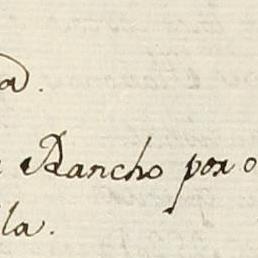 a.
Rancho por
la.